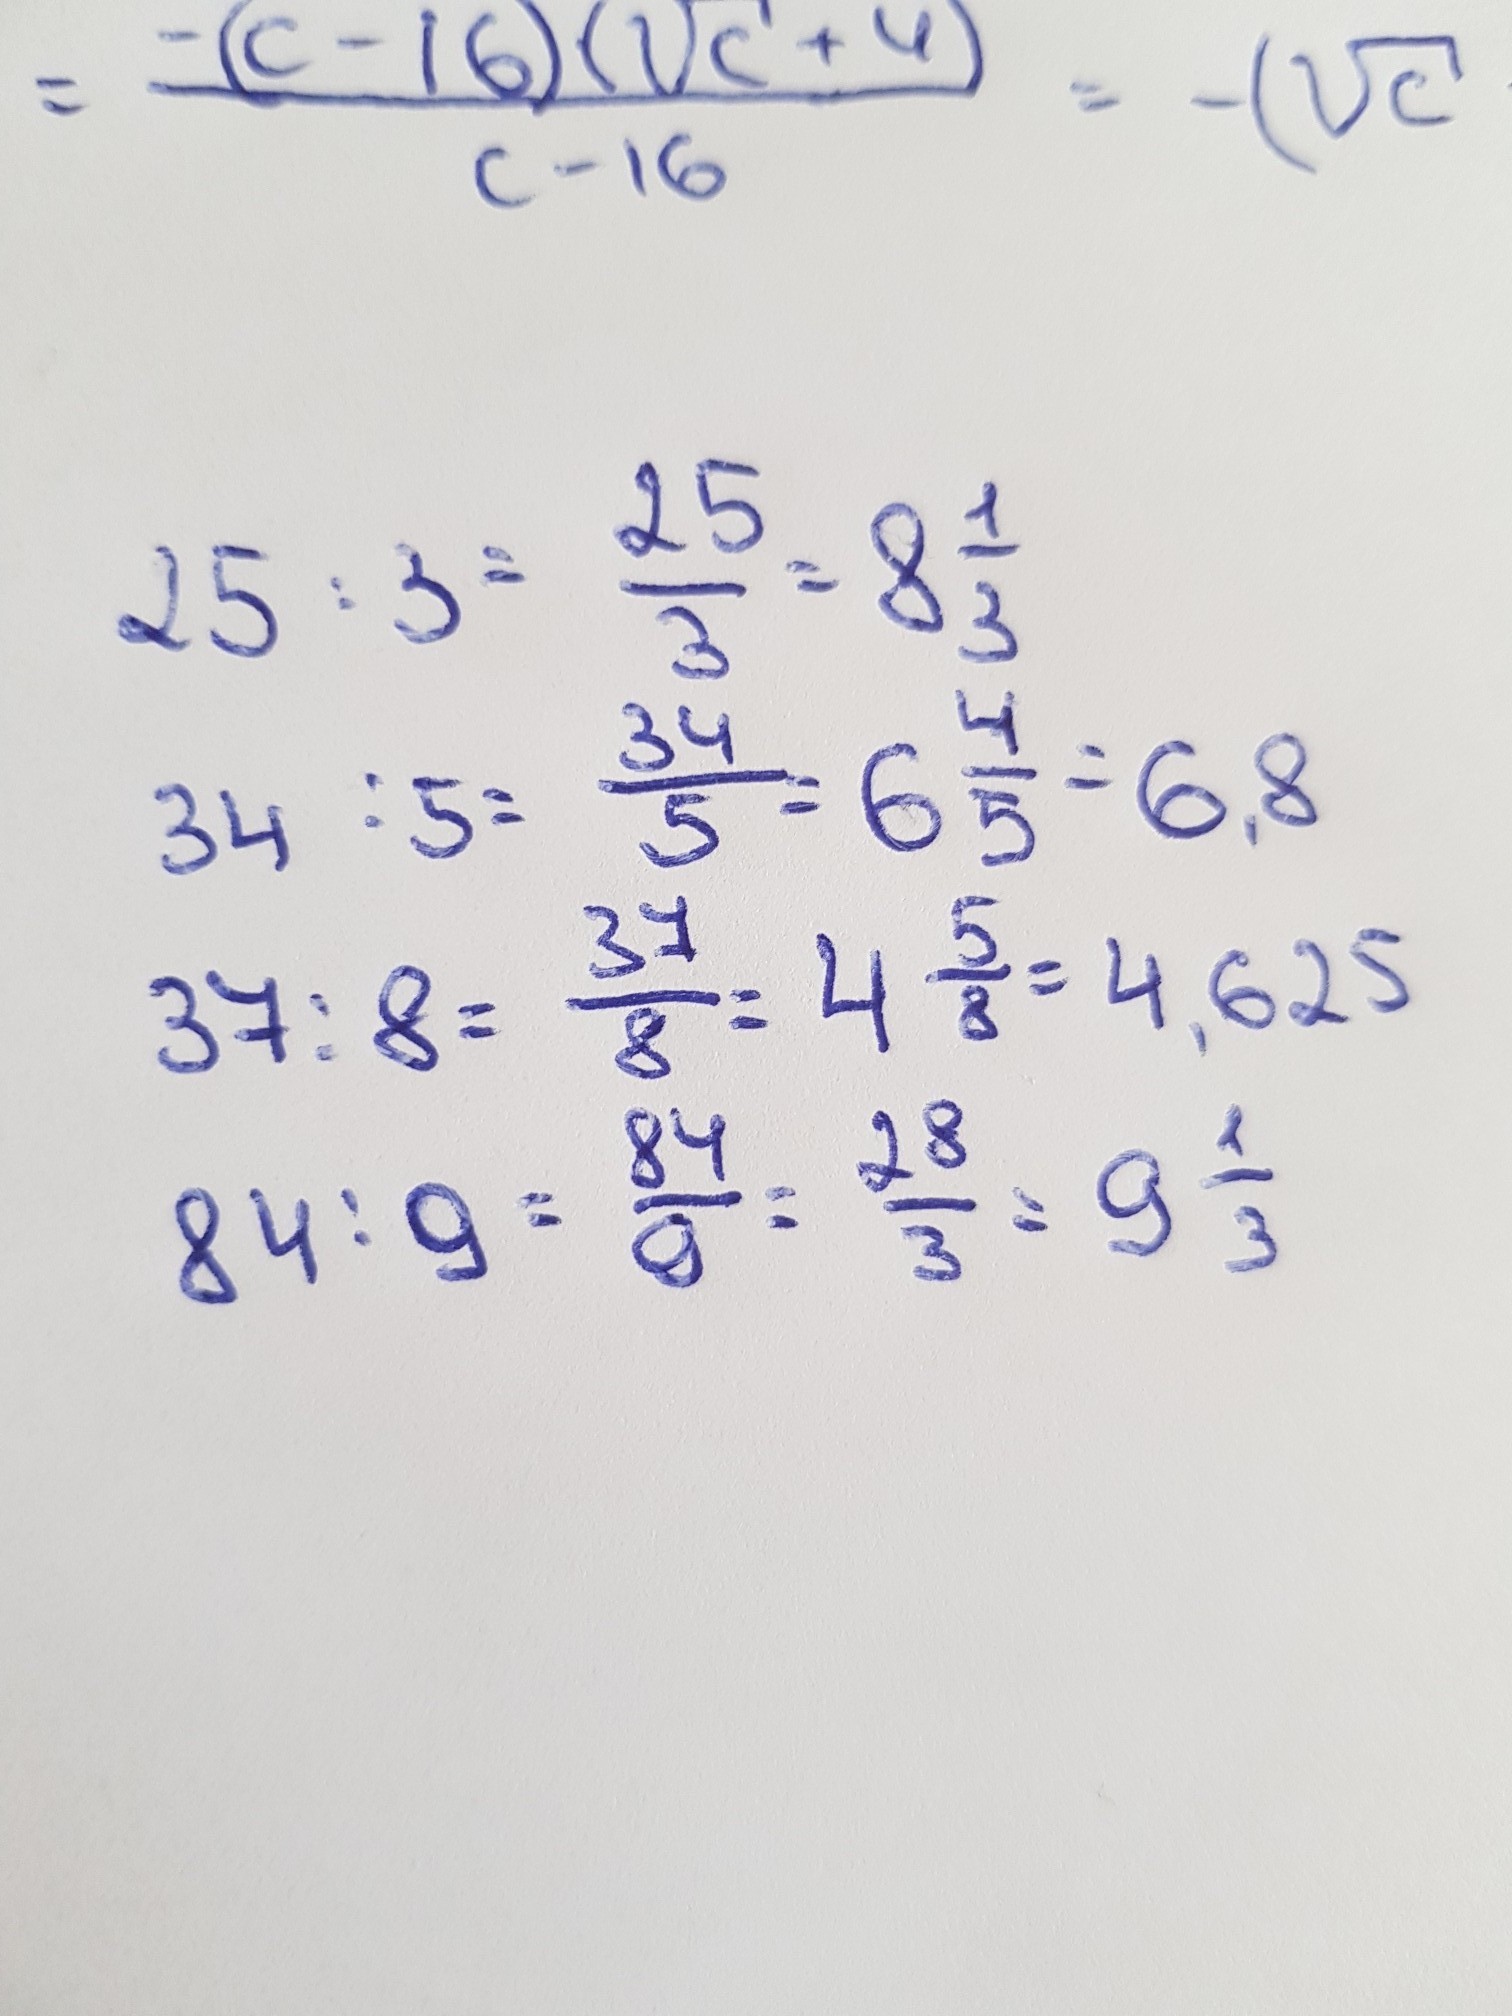 = -(c-16)(√c+4) / c-16 = -(√c
25 : 3 = 25/3 = 8 1/3
34 : 5 = 34/5 = 6 4/5 = 6,8
37 : 8 = 37/8 = 4 5/8 = 4,625
84 : 9 = 84/9 = 28/3 = 9 1/3